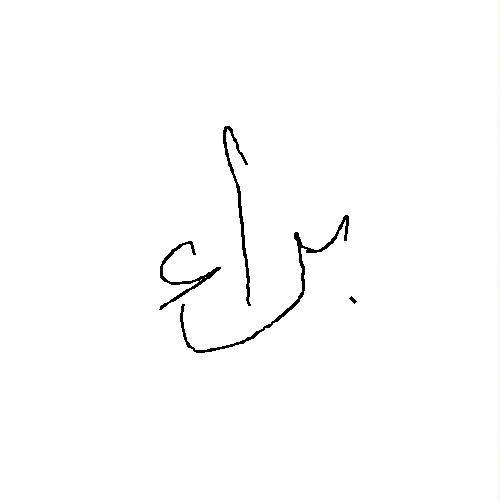 براء